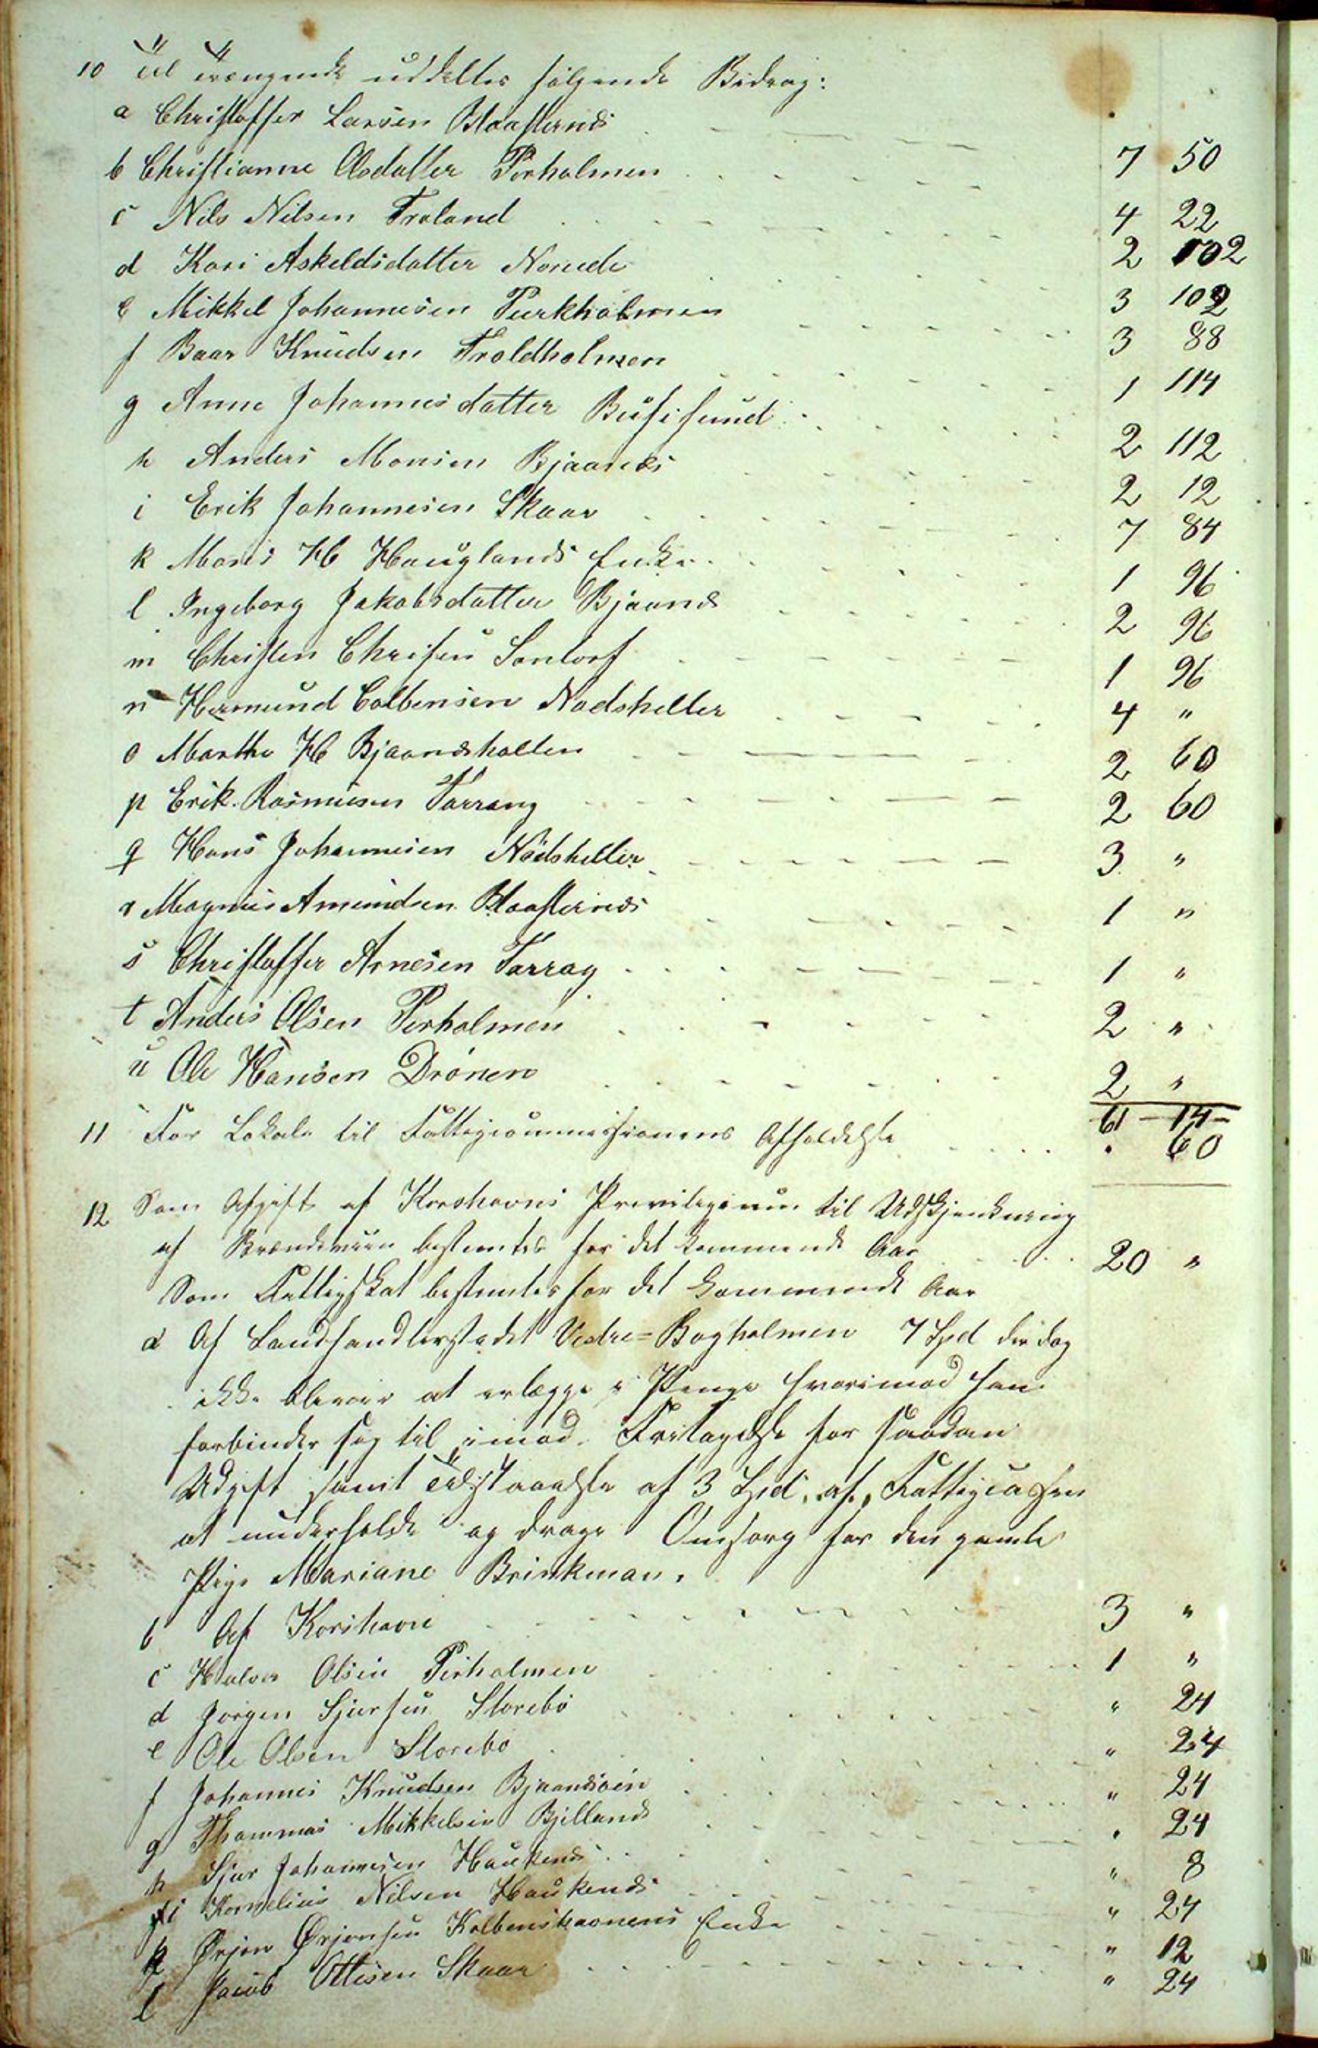 10 Til Trængende uddeltes følgende Bidrag:
a Christoffer Larsen Blaasternæs 7 50
b Christianne Olsdatter Perholmen 4 22
c Nils Nilsen Troland 2 102
d Kari Askeldsdatter Norede 3 102
e Mikkel Johannesen Purkholmen 3 88
f Baar Knudsen Troldholmen 1 114
g Anne Johannesdatter Busesund 2 112
h Anders Monsen Bjaanæs 2 12
i Erik Johannesen Skaar 7 84
k Mons H Hauglands Enke 1 96
l Ingeborg Jakobsdatter Bjaanæs 2 96
m Christen Chrisen Santorf 1 96
n Hermund Colbensen Nodsheller 4 "
o Martha H Bjaanæshatten 2 60
p Erik Rasmusen Tarrang 2 60
q Hans Johannesen Nødsheller 3 "
r Magnus Amundsen Blaasternæs 1 "
s Christoffer Arnesen Tarrag 1 "
t Anders Olsen Perholmen 2 "
u Ole Hansen Drønen 2 "
61 - 14 -
11 For Lokale til Fattigcommissionens Afholdelse . 60
12 Som Afgift af Korshavns Previlegium til Udskjenkning
af Brændeviin bestemtes for det kommende Aar 20 "
Som Fattigskat bestemtes for det kommende Aar
a Af Landhandlerstedet Vedre=Bagholmen 7 Spd der dog
ikke bliver at erlægge i Penge hvorimod han
forbinder sig til imod Fritagelse for saadan
Udgift samt Tilstaaelse af 3 Spd. af Fattigcassen
at underholde og drage Omsorg for den gamle
Pige Mariane Brinkman.
b Af Korshavn 3 "
c Halver Olsen Perholmen 1 "
d Jørgen Sjursen Storebø " 24
e Ole Olsen Storebø " 24
f Johannes Knudsen Bjaanæsøen " 24
g Thommas Mikkelsen Bjelland . 24
h Sjur Johannesen Haukenæs " 8
i Kornelius Nilsen Haukenæs " 24
k Ørjan Ørjansen Kolbenshavnens Enke " 12
l Jacob Ottesen Skaar " 24